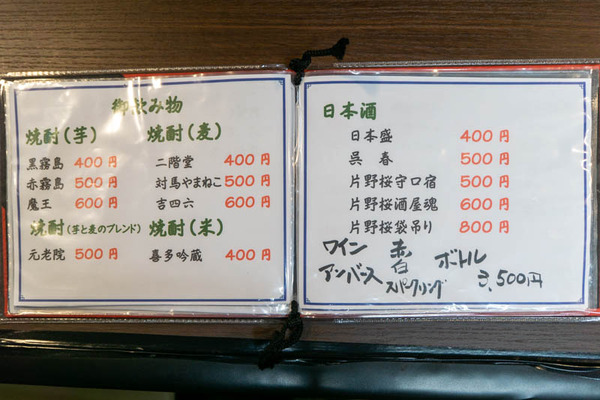 御飲み物
焼酎(芋) 焼酎(麦)
黒霧島 400円 二階堂 400円
赤霧島 500円 対馬やまねこ 500円
魔王 600円 吉四六 600円
焼酎(芋と麦のブレンド) 焼酎(米)
元老院 500円 喜多吟蔵 400円
日本酒
日本盛 400円
呉春 500円
片野桜守口宿 500円
片野桜酒屋魂 600円
片野桜袋吊り 800円
ワイン 赤 ボトル
アンバース 白 3,500円
スパークリング